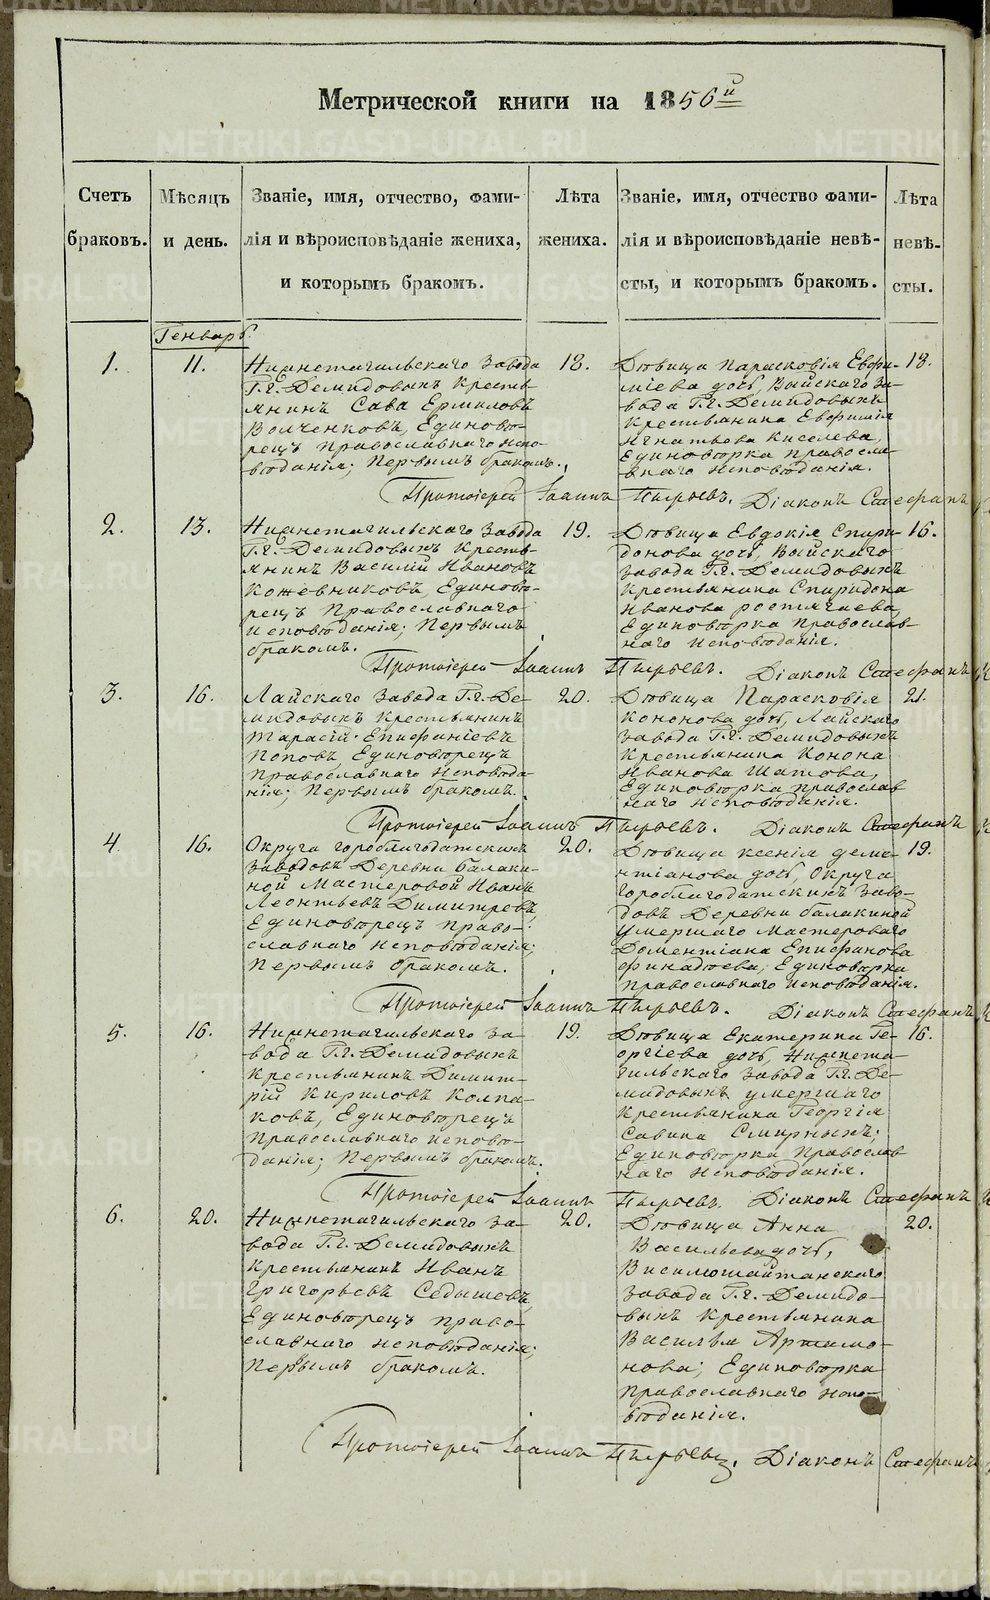 Метрической книги на 1856й
Счетъ браковъ.
Мѣсяцъ и день.
Званіе, имя, отчество, фами-
лія и вѣроисповѣданіе жениха,
и которымъ бракомъ.
Лѣта жениха.
Званіе, имя, отчество фами-
лія и вѣроисповѣданіе невѣ-
сты, и которымъ бракомъ.
Лѣта невѣ-
сты.
Генварь
1. 11.
Нижнетагильскаго завода
Г.г. Демидовыхъ кресть-
янинъ Сава Ермиловъ
Волченковъ, Единовѣ-
рецъ православнаго испо-
вѣданія; Первымъ бракомъ.
18.
Дѣвица Парасковія Евфи-
міева дочь, Выйскаго за-
вода Г.г. Демидовыхъ
крестьянина Евфимія
Игнатьева Киселева,
Единовѣрка правосла-
внаго исповѣданія.
18.
Протоіерей Іоаннъ Пырьевъ. Діаконъ Стефанъ
2. 13.
Нижнетагильскаго завода
Г.г. Демидовыхъ кресть-
янинъ Василій Ивановъ
Кожевниковъ, Единовѣ-
рецъ Православнаго
исповѣданія; Первымъ
бракомъ.
19.
Дѣвица Евдокія Спири-
донова дочь, Выйскаго
завода Г.г. Демидовыхъ
крестьянина Спиридона
Иванова Ростягаева,
Единовѣрка православ-
наго исповѣданія.
16.
Протоіерей Іоаннъ Пырьевъ. Діаконъ Стефанъ
3. 16.
Лайскаго завода Г.г. Де-
мидовыхъ крестьянинъ
Тарасій Епифаніевъ
Поповъ, Единовѣрецъ
православнаго исповѣда-
нія; Первымъ бракомъ.
20.
Дѣвица Парасковія
Кононова дочь, Лайскаго
завода Г.г. Демидовыхъ
крестьянина Конона
Иванова Шатова,
Единовѣрка православ
наго исповѣданія.
21.
Протоіерей Іоаннъ Пырьевъ. Діаконъ Стефанъ
4. 16.
Округа гороблагодатскихъ
заводовъ Деревни балаки-
ной Мастеровой Иванъ
Леонтьевъ Димитревъ,
Единовѣрецъ право-
славнаго исповѣданія;
Первымъ бракомъ.
20.
Дѣвица Ксенія деме-
нтіанова дочь, Округа
гороблагодатскихъ заво-
довъ Деревни балакиной
умершаго мастероваго
Доментіана Епифанова
Финадѣева, Единоверка
православнаго исповѣданія.
19.
Протоіерей Іоаннъ Пырьевъ. Діаконъ Стефанъ
5. 16.
Нижнетагильскаго за-
вода Г.г. Демидовыхъ
крестьянинъ Димит-
рій Кириловъ Колпа-
ковъ, Единовѣрецъ
православнаго исповѣ-
данія; Первымъ бракомъ.
19.
Дѣвица Екатерина Ге-
оргіева дочь, Нижнета-
гильскаго завода Г.г. Де-
мидовыхъ умершаго
крестьянина Георгія
Савина Смирныхъ;
Единовѣрка Православ
наго исповѣданія.
16.
Протоіерей Іоаннъ Пырьевъ. Діаконъ Стефанъ
6. 20.
Нижнетагильскаго за-
вода Г.г. Демидовыхъ
крестьянинъ Иванъ
Григорьевъ Седышевъ,
Единовѣрецъ право-
славнаго исповѣданія;
Первымъ бракомъ.
20.
Дѣвица Анна
Васильева дочь,
Висимошайтанскаго
завода Г.г. Демидо-
выхъ крестьянина
Василья Артамо-
нова; Единовѣрка
православнаго испо-
вѣданія.
20.
Протоіерей Іоаннъ Пырьевъ. Діаконъ Стефанъ
METRIKI.GASO-URAL.RU